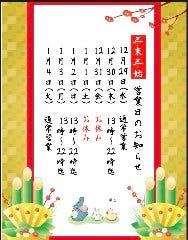 年末年始
営業日のお知らせ
12月29日(水) 通常営業
12月30日(木) 13時〜22時迄
12月31日(金) お休み
1月1日(土) お休み
1月2日(日) 13時〜22時迄
1月3日(月) 13時〜22時迄
1月4日(火) 通常営業